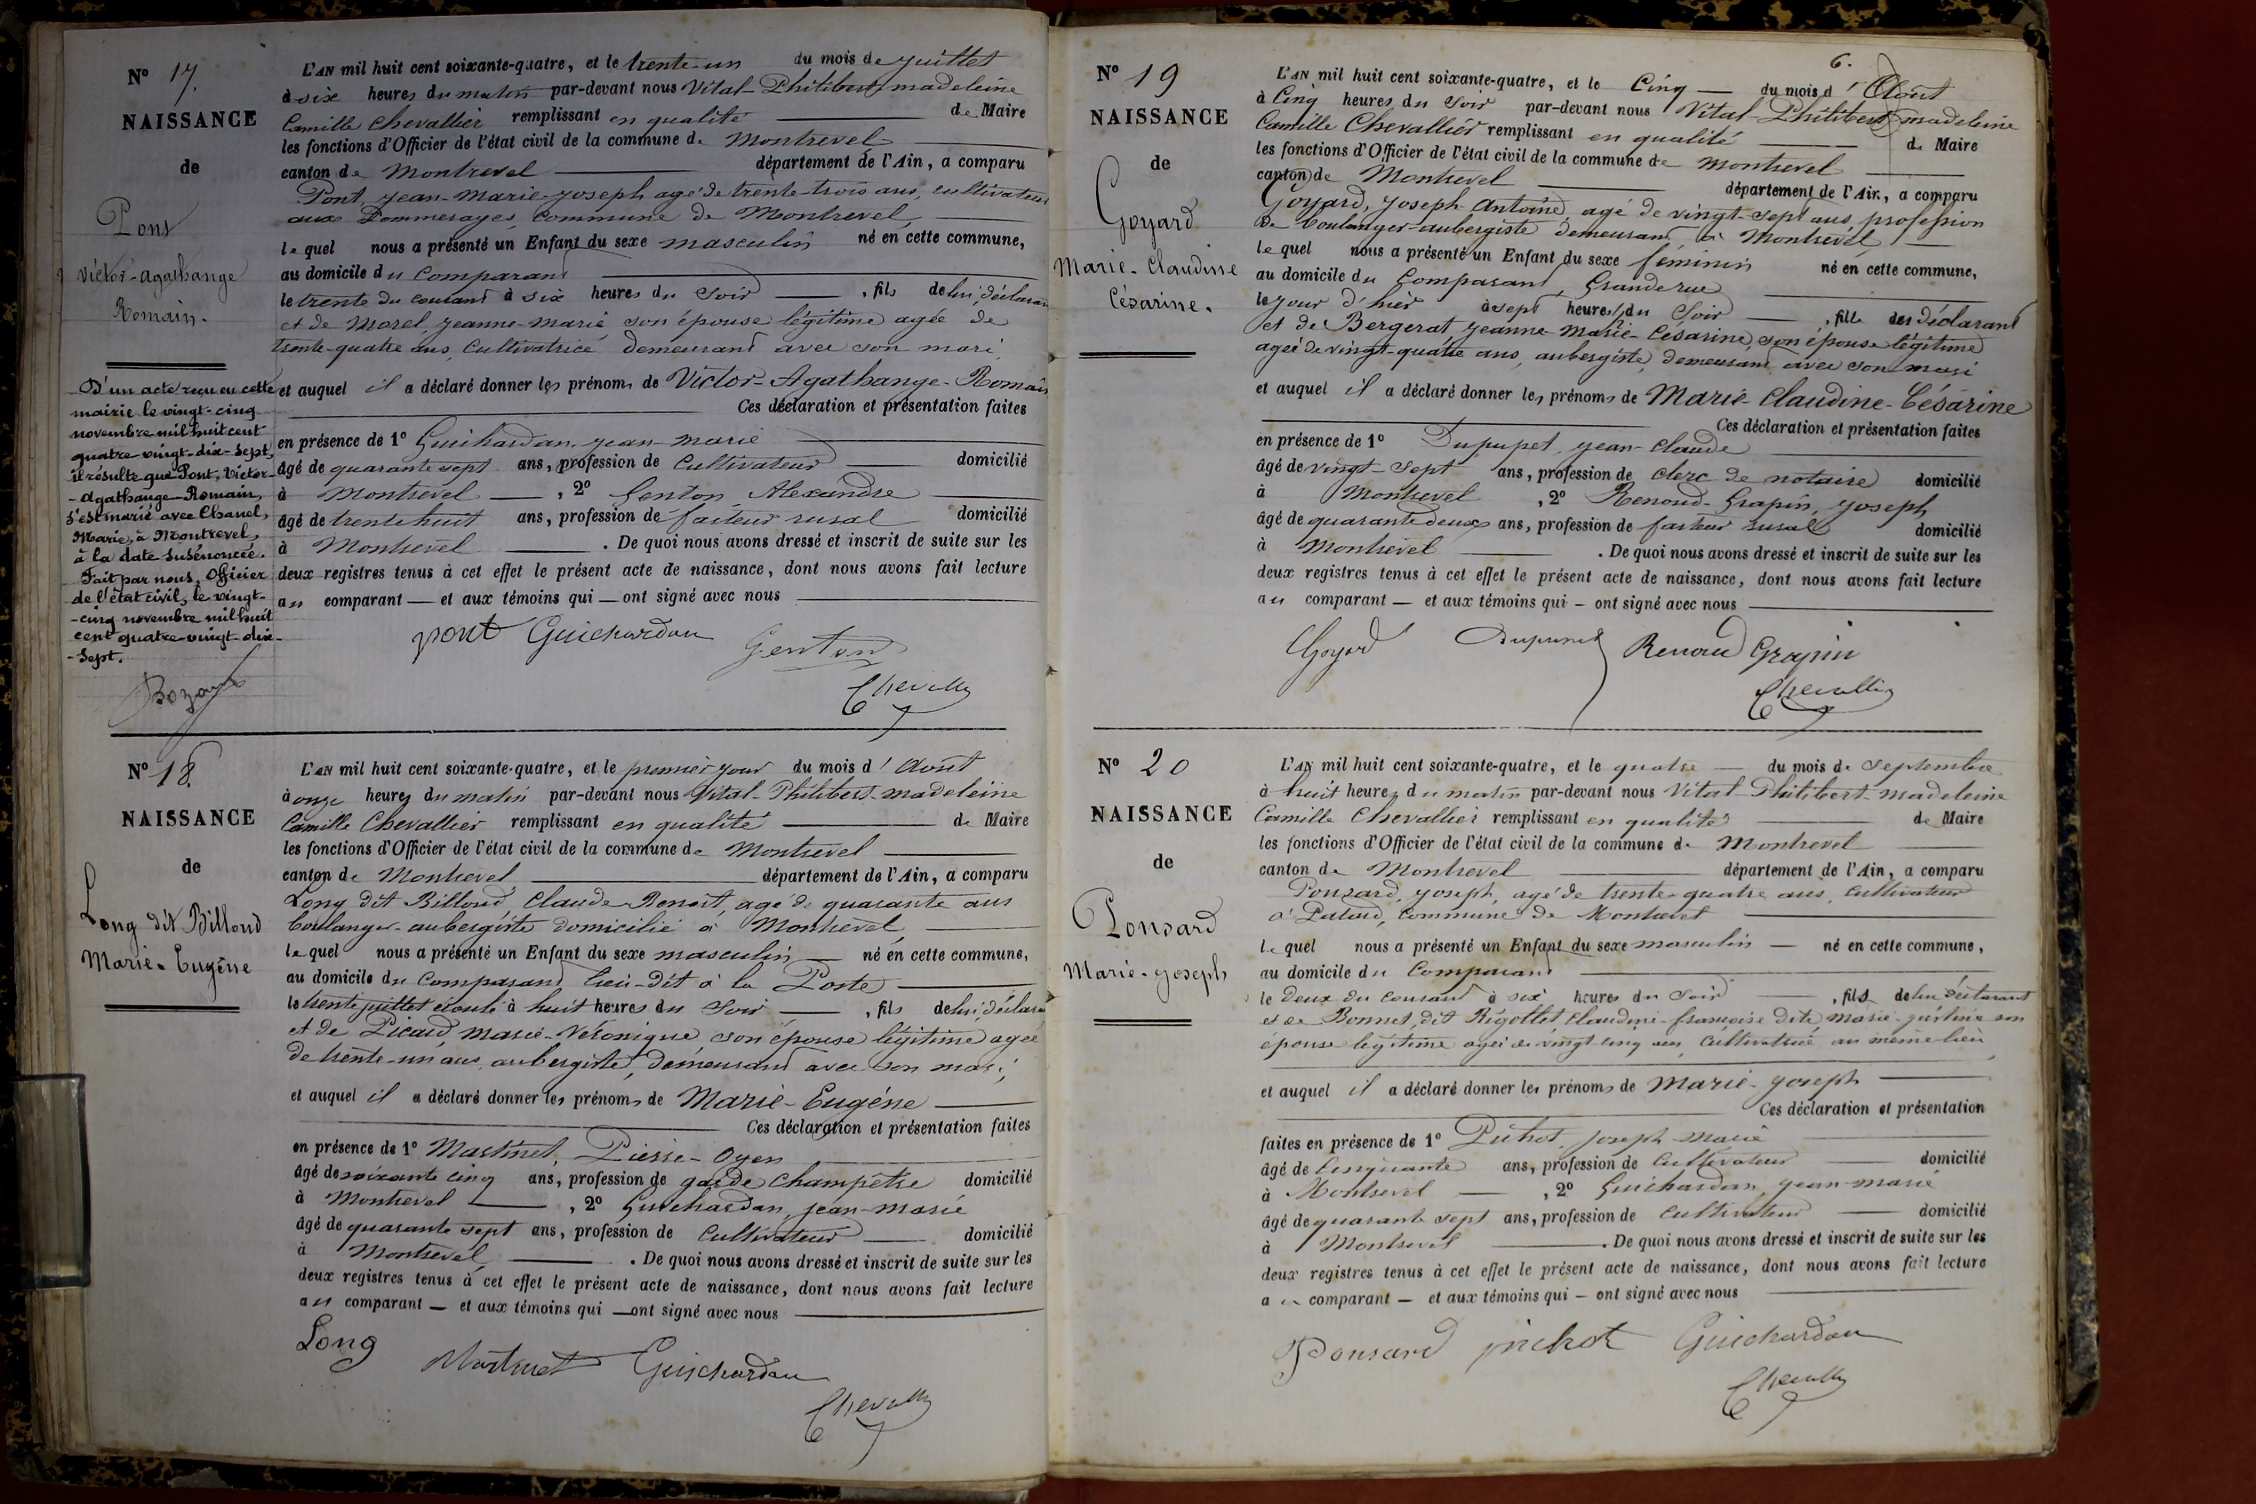 N° 17.
NAISSANCE
de
Pont
Victor-Agathange
Romain.
L'AN mil huit cent soixante-quatre, et le trente-un du mois de juillet
à six heures du matin par-devant nous Vital-Philibert-Madeleine
Camille Chevallier remplissant en qualité de Maire
les fonctions d'Officier de l'état civil de la commune de Montrevel
canton de Montrevel département de l'Ain, a comparu
Pont, Jean-Marie-Joseph agé de trente-trois ans, cultivateur
aux Pommerages, Commune de Montrevel
lequel nous a présenté un Enfant du sexe masculin né en cette commune,
au domicile du Comparant
le trente du courant à six heures du Soir , fils de lui, déclarant
et de Morel, Jeanne-Marie son épouse légitime agée de
trente-quatre ans, Cultivatrice demeurant avec son mari,
et auquel il a déclaré donner les prénoms de Victor-Agathange-Romain
Ces déclaration et présentation faites
en présence de 1° Guichardan, Jean-Marie
âgé de quarante sept ans, profession de Cultivateur domicilié
à Montrevel , 2° Genton Alexandre
âgé de trente huit ans, profession de facteur rural domicilié
à Montrevel . De quoi nous avons dressé et inscrit de suite sur les
deux registres tenus à cet effet le présent acte de naissance, dont nous avons fait lecture
au comparant — et aux témoins qui — ont signé avec nous
pont Guichardan Genton
Chevallier
D'un acte reçu en cette
mairie le vingt-cinq
novembre mil huit cent
quatre-vingt-dix-sept,
il résulte que Pont, Victor-
-Agathange-Romain,
s'est marié avec Chanel,
Marie, à Montrevel,
à la date susénoncée.
Fait par nous, Officier
de l'état civil, le vingt-
-cinq novembre mil huit
cent quatre-vingt-dix-
-sept.
N° 18.
NAISSANCE
de
Long dit Billoud
Marie-Eugène
L'AN mil huit cent soixante-quatre, et le premier jour du mois d'Août
à onze heures du matin par-devant nous Vital-Philibert-Madeleine
Camille Chevallier remplissant en qualité de Maire
les fonctions d'Officier de l'état civil de la commune de Montrevel
canton de Montrevel département de l'Ain, a comparu
Long dit Billoud, Claude-Benoit, agé de quarante ans
boulanger-aubergiste domicilié à Montrevel,
lequel nous a présenté un Enfant du sexe masculin né en cette commune,
au domicile du Comparant, lieu-dit à la Poste
le trente juillet écoulé à huit heures du Soir , fils de lui, déclarant
et de Picard, Marie-Véronique, son épouse légitime agée
de trente-un ans, aubergiste, demeurant avec son mari,
et auquel il a déclaré donner les prénoms de Marie-Eugène
Ces déclaration et présentation faites
en présence de 1° Martinet, Pierre-Oyen
âgé de soixante cinq ans, profession de garde Champêtre domicilié
à Montrevel , 2° Guichardan, Jean-Marie
âgé de quarante sept ans, profession de Cultivateur domicilié
à Montrevel . De quoi nous avons dressé et inscrit de suite sur les
deux registres tenus à cet effet le présent acte de naissance, dont nous avons fait lecture
au comparant — et aux témoins qui — ont signé avec nous
Long Martinet Guichardan
Chevallier
6.
N° 19
NAISSANCE
de
Goyard
Marie-Claudine
Césarine.
L'AN mil huit cent soixante-quatre, et le Cinq du mois d'Août
à Cinq heures du Soir par-devant nous Vital-Philibert-Madeleine
Camille Chevallier remplissant en qualité de Maire
les fonctions d'Officier de l'état civil de la commune de Montrevel
canton de Montrevel département de l'Ain, a comparu
Goyard, Joseph-Antoine, agé de vingt-sept ans, profession
de boulanger-aubergiste demeurant à Montrevel
lequel nous a présenté un Enfant du sexe féminin né en cette commune,
au domicile du Comparant, Grande rue
le jour d'hier à sept heures du Soir , fille du déclarant
et de Bergerat Jeanne-Marie-Césarine, son épouse légitime
agée de vingt-quatre ans, aubergiste, demeurant avec son mari
et auquel il a déclaré donner les prénoms de Marie-Claudine-Césarine
Ces déclaration et présentation faites
en présence de 1° Dupupet, Jean-Claude
âgé de vingt-sept ans, profession de clerc de notaire domicilié
à Montrevel , 2° Renoud-Grapin, Joseph
âgé de quarante deux ans, profession de facteur rural domicilié
à Montrevel . De quoi nous avons dressé et inscrit de suite sur les
deux registres tenus à cet effet le présent acte de naissance, dont nous avons fait lecture
au comparant — et aux témoins qui — ont signé avec nous
Goyard Dupupet Renoud Grapin
Chevallier
N° 20
NAISSANCE
de
Ponsard
Marie-Joseph
L'AN mil huit cent soixante-quatre, et le quatre du mois de Septembre
à huit heures du matin par-devant nous Vital-Philibert-Madeleine
Camille Chevallier remplissant en qualité de Maire
les fonctions d'Officier de l'état civil de la commune de Montrevel
canton de Montrevel département de l'Ain, a comparu
Ponsard, Joseph, agé de trente-quatre ans, Cultivateur
à commune de Montrevel
lequel nous a présenté un Enfant du sexe masculin né en cette commune,
au domicile du Comparant
le deux du courant à six heures du Soir , fils de lui déclarant
et de Bonnet, dit Rigollet, Claudine-françoise dite Marie-justine son
épouse légitime agée de vingt cinq ans, Cultivatrice au même lieu,
et auquel il a déclaré donner les prénoms de Marie-Joseph
Ces déclaration et présentation
faites en présence de 1° Pichot, Joseph-Marie
âgé de Cinquante ans, profession de Cultivateur domicilié
à Montrevel , 2° Guichardan, Jean-Marie
âgé de quarante sept ans, profession de Cultivateur domicilié
à Montrevel . De quoi nous avons dressé et inscrit de suite sur les
deux registres tenus à cet effet le présent acte de naissance, dont nous avons fait lecture
au comparant — et aux témoins qui — ont signé avec nous
Ponsard pichot Guichardan
Chevallier